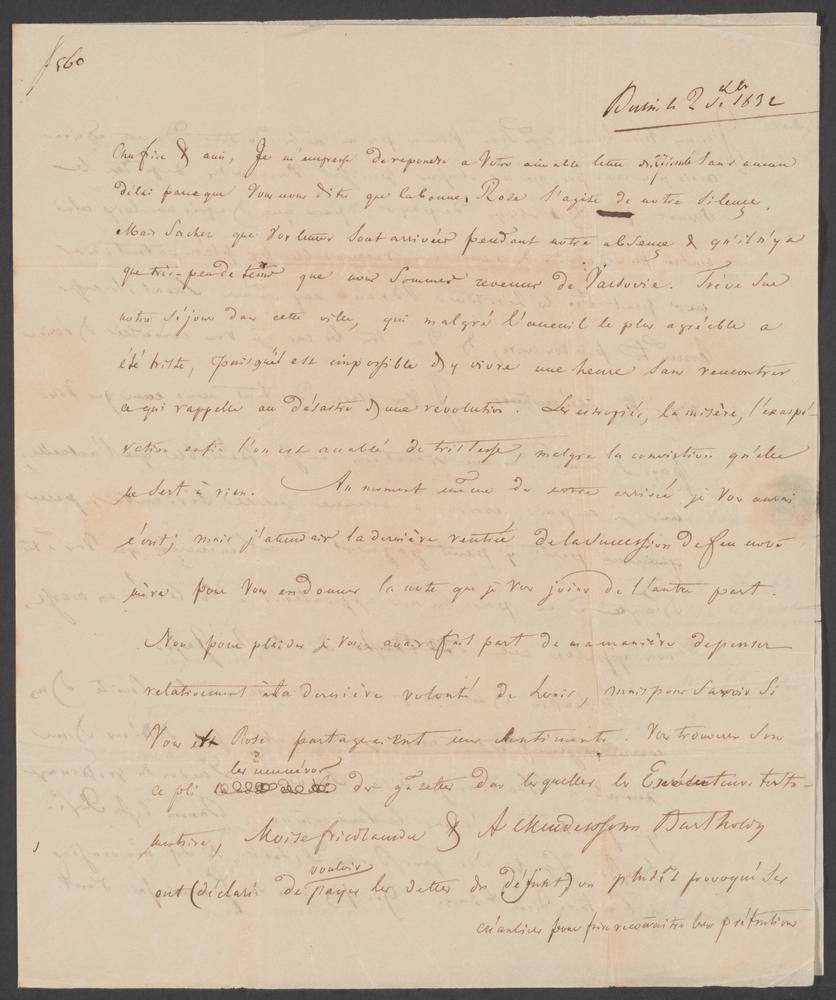 560
Berlin le 2 8br 1832
Cher frère & ami, Je m'empresse de reponдre a Votre aimable lettre sans aucun
délai parceque Vous nous dites que la bonne Rose s'agite de notre silence.
Mais Sachez que Vos lettres sont arrivées pendant notre absence & qu'il n'y a
que très-peu de tems que nous sommes revenus de Varsovie. Trève sur
notre séjour dans cette ville, qui malgré l'acceuil le plus agréable a
été triste, puisqu'il est impossible d'y vivre une heure sans rencontrer
ce qui rappelle au désastre d'une révolution. Les estropiés, la misère, l'exaspé-
ration enfin l'on est accablé de tristesse, malgré la conviction qu'elle
ne sert à rien. Au moment même de notre arrivée je Vous aurai
écrit; mais j'attendais la dernière rentrée de la Succession de feu notre
mère pour Vous en donner la note que je Vous joins de l'autre part.
Non pour plaider je Vous avais fait part de ma manière de penser
relativement à la dernière volonté de Louis, mais pour Savoir Si
Vous et Rose partageaient mes sentiments. Vous trouverez Sous
ce pli les numéros des gazettes dans lesquelles les Exécuteurs testa-
mentaires, Moise friedlander & A Mendelssohn Bartholdy
ont (déclaré vouloir de payer les dettes du défunt) ou plutôt provoqué Ses
créanciers pour faire reconnaitre leurs prétentions